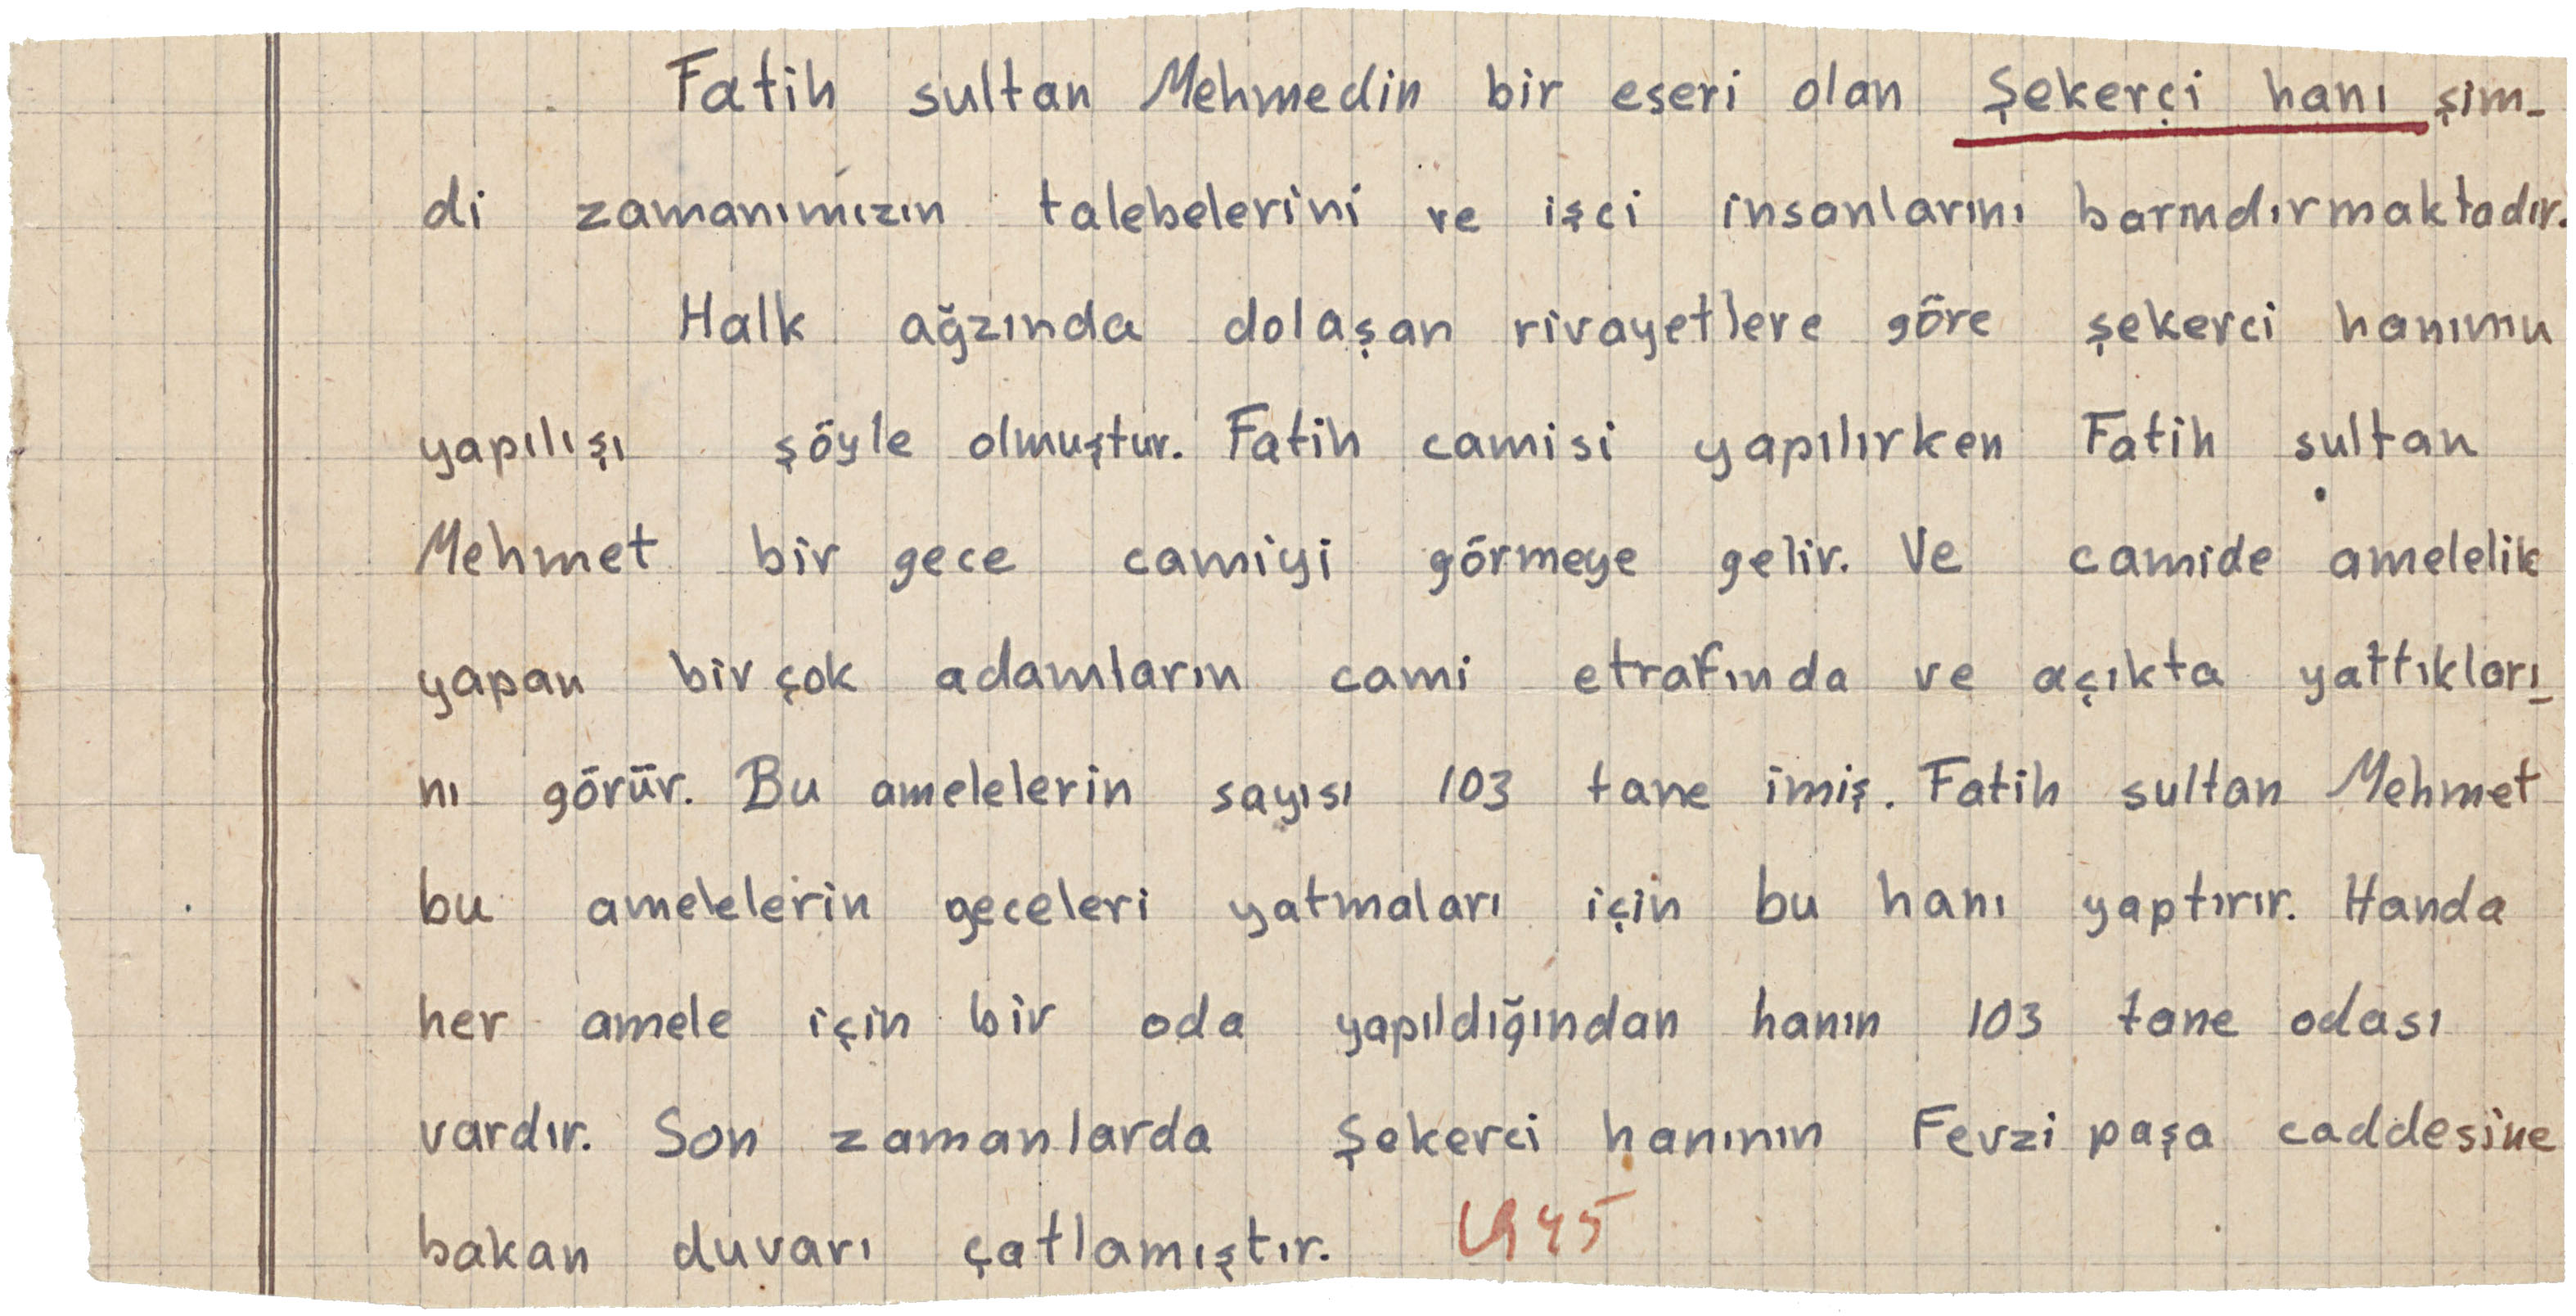 Fatih sultan Mehmedin bir eseri olan Şekerçi hanı şim-
di zamanımızın talebelerini ve işci insanlarını barındırmaktadır.
Halk ağzında dolaşan rivayetlere göre şekerci hanımu
yapılışı şöyle olmuştur. Fatih camisi yapılırken Fatih sultan
Mehmet bir gece camiyi görmeye gelir. Ve camide amelelik
yapan bir çok adamların cami etrafında ve açıkta yattıkları-
nı görür. Bu amelelerin sayısı 103 tane imiş. Fatih sultan Mehmet
bu amelelerin geceleri yatmaları için bu hanı yaptırır. Handa
her amele için bir oda yapıldığından hanın 103 tane odası
vardır. Son zamanlarda Şekerci hanının Fevzi paşa caddesine
bakan duvarı çatlamıştır. 1945